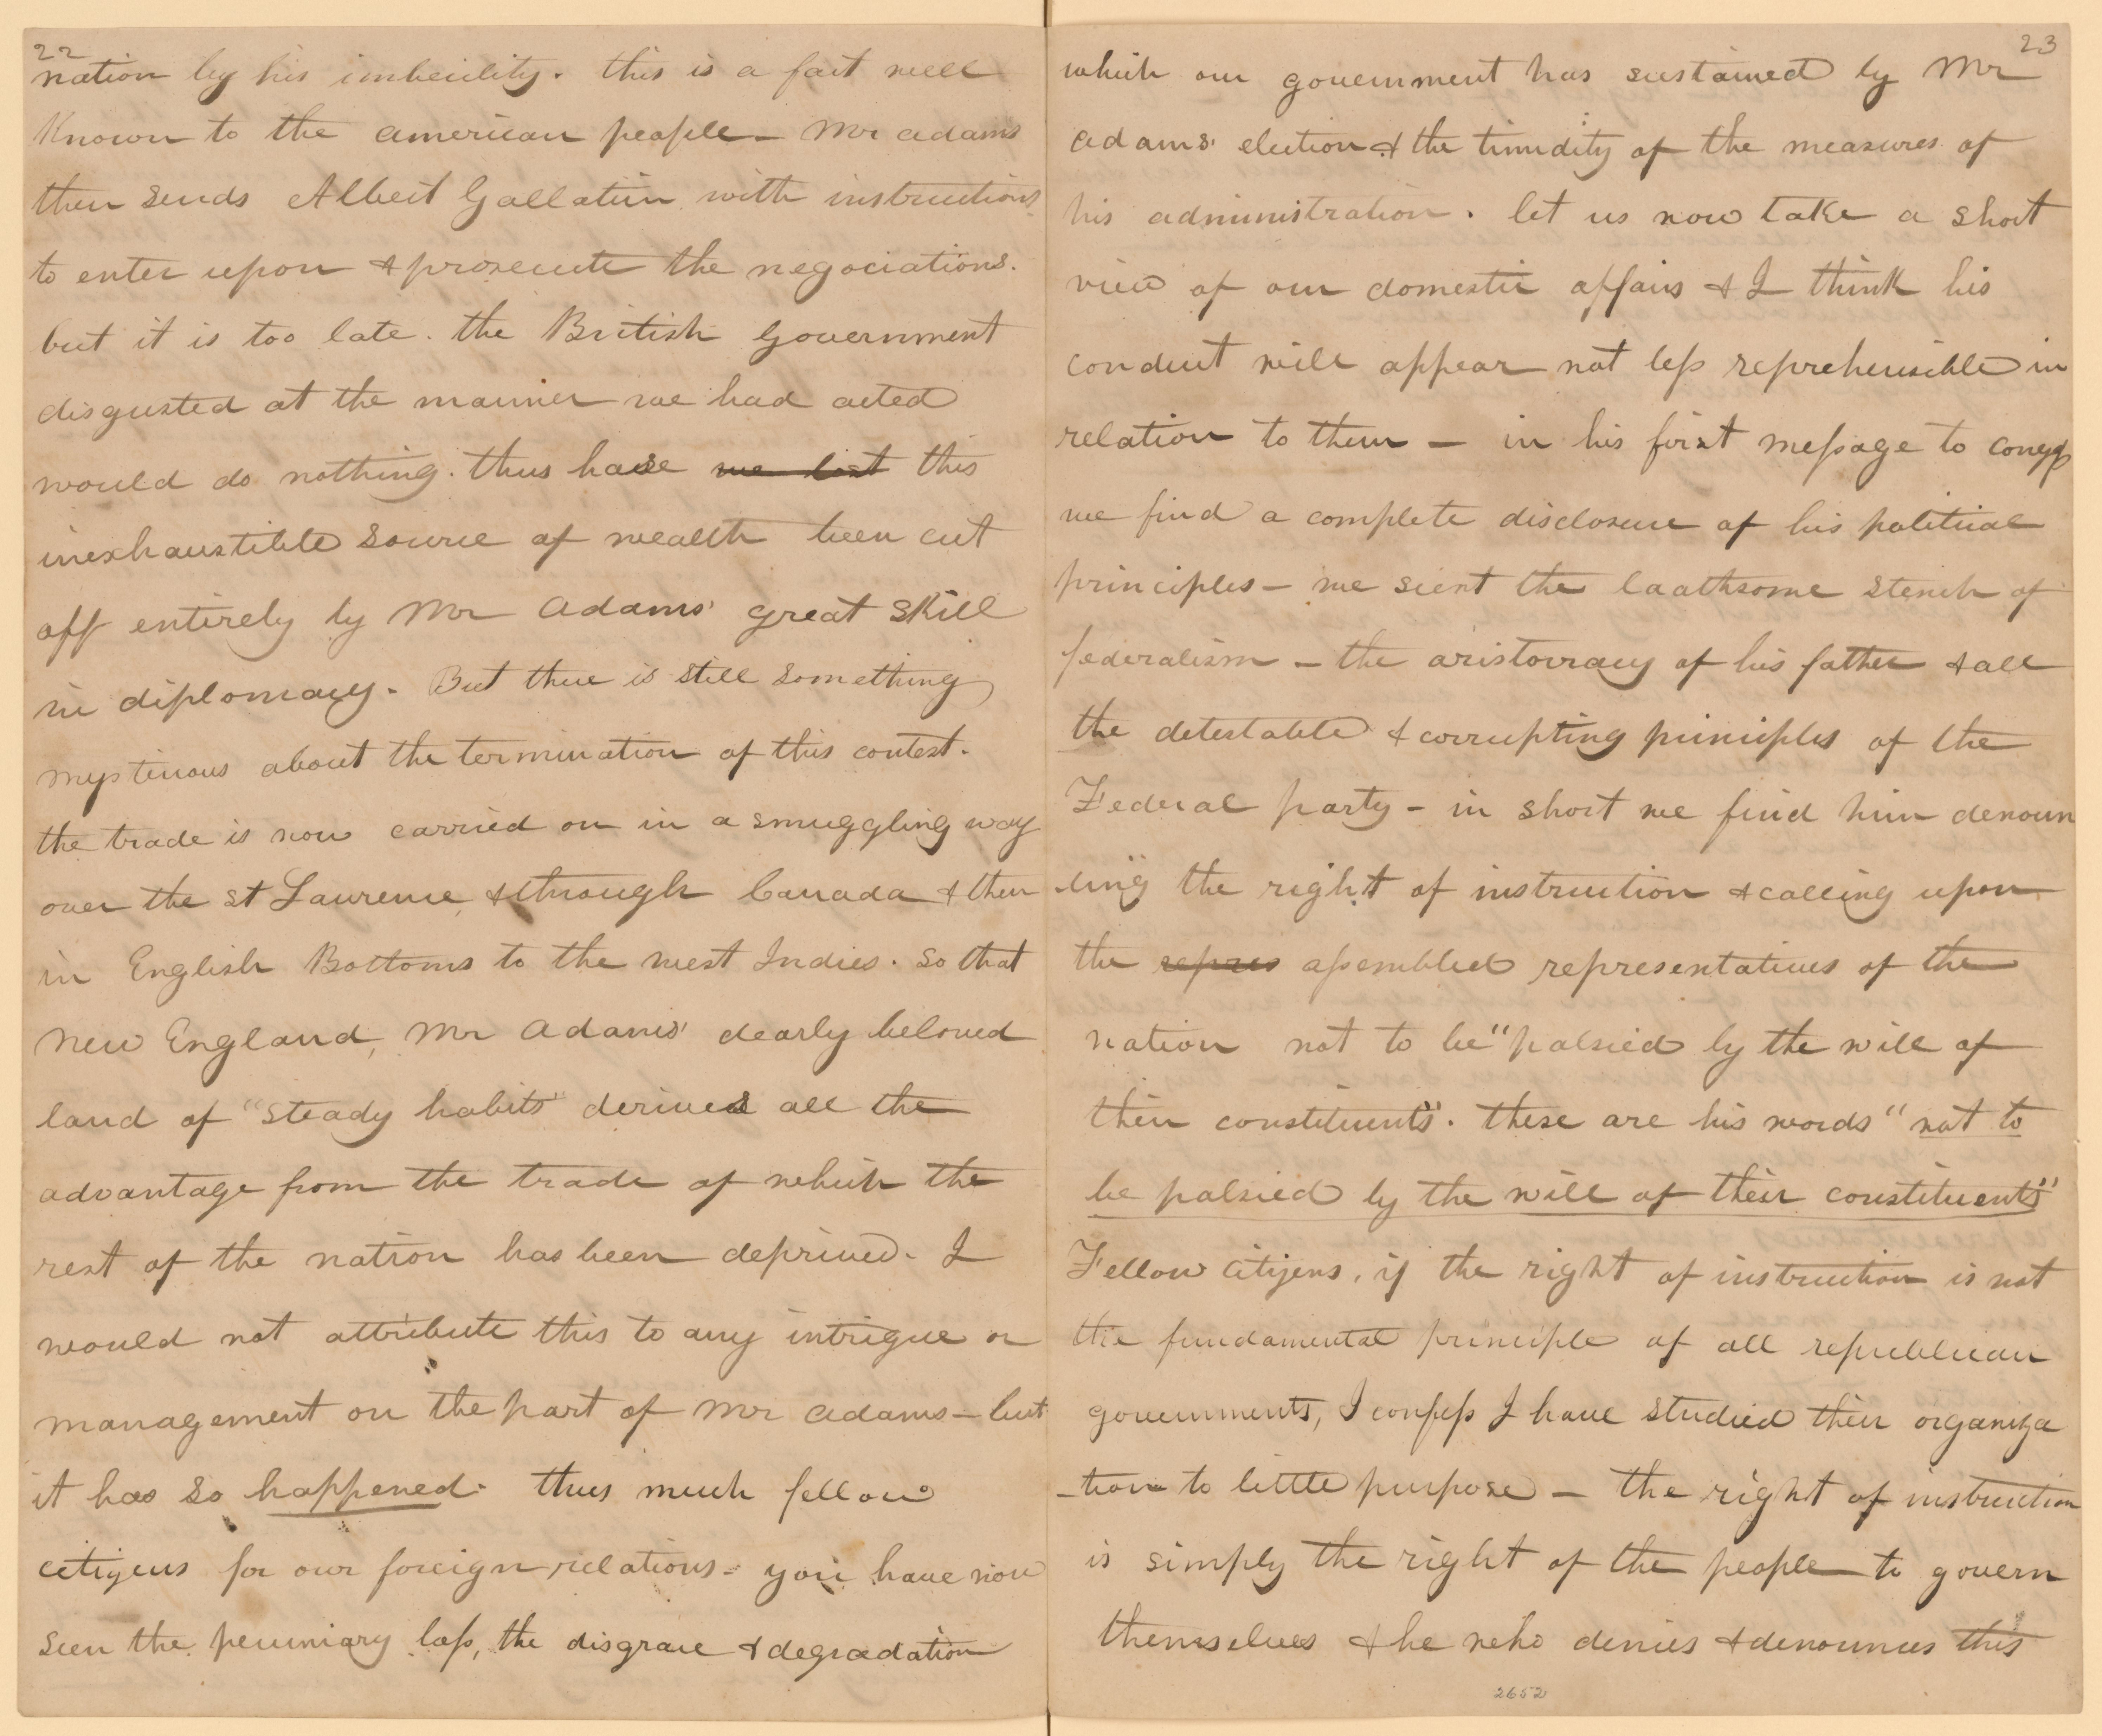 22
nation by his imbecility. this is a fact well
Known to the american people — Mr adams
then sends Albert Gallatin with instructions
to enter upon & prosecute the negociations.
but it is too late. the British Government
disgusted at the manner we had acted
would do nothing. thus have we lost this
inexhaustible source of wealth been cut
off entirely by Mr Adams' great skill
in diplomacy. But there is still something
mysterious about the termination of this contest.
the trade is now carried on in a smuggling way
over the st Laurence, & through Canada & then
in English Bottoms to the west Indies. So that
New England, Mr Adams' dearly beloved
land of "steady habits" derives all the
advantage from the trade of which the
rest of the nation has been deprived. I
would not attribute this to any intrigue or
management on the part of Mr Adams — but
it has so happened. thus much fellow
citizens for our foreign relations — you have now
seen the pecuniary loss, the disgrace & degradation
23
which our government has sustained by Mr
Adams' election & the timidity of the measures of
his administration. let us now take a short
view of our domestic affairs & I think his
conduct will appear not less reprehensible in
relation to them — in his first message to congss
we find a complete disclosure of his political
principles — we scent the loathsome stench of
federalism — the aristocracy of his father & all
the detestable & corrupting principles of the
Federal party — in short we find him denoun
-cing the right of instruction & calling upon
the repres assembled representatives of the
nation not to be "palsied by the will of
their constituents". these are his words "not to
be palsied by the will of their constituents"
Fellow citizens, if the right of instruction is not
the fundamental principle of all republican
governments, I confess I have studied their organiza
-tion to little purpose — the right of instruction
is simply the right of the people to govern
themselves & he who denies & denounces this
2652